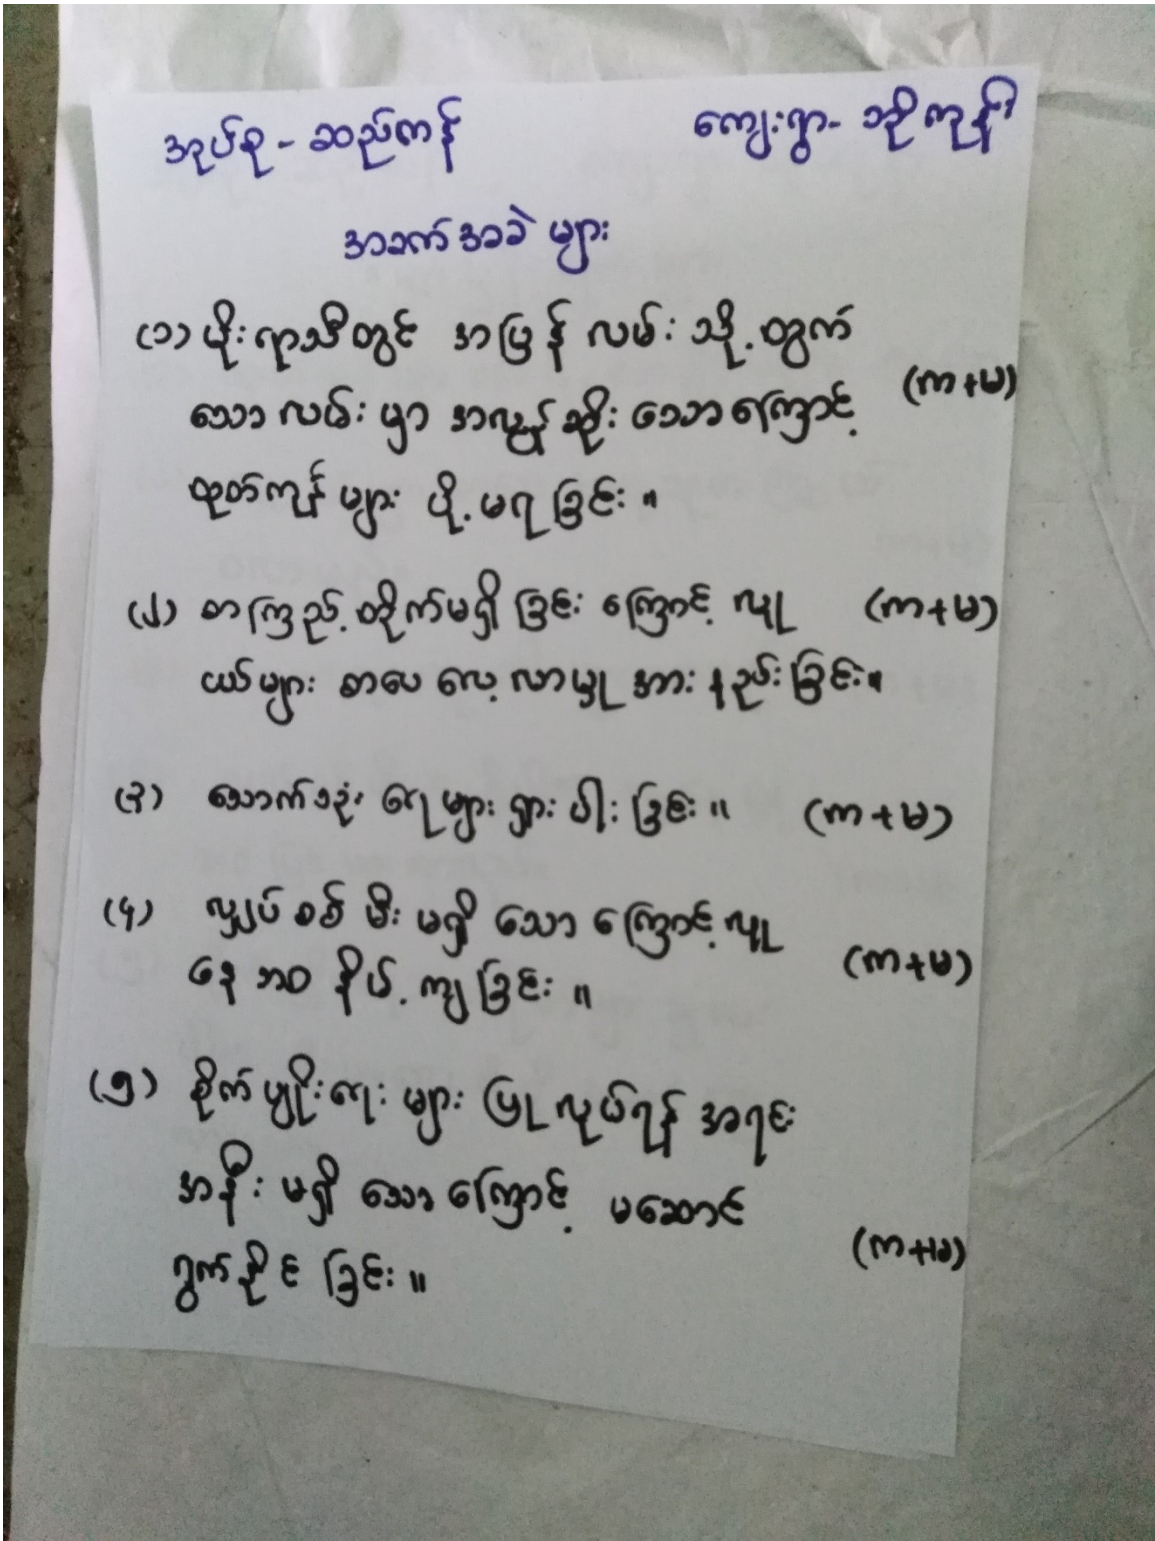 အုပ်စု - ဆည်ကန် ကျေးရွာ - ဘိုကုန်း
အခက်အခဲ များ
(၁) မိုးရာသီတွင် အပြန် လမ်း သို့ ထွက်
သော လမ်း မှာ အလွန် ဆိုး သောကြောင့် (က+မ)
ထုတ်ကုန် များ ပို့ မရ ခြင်း ။
(၂) စာကြည့် တိုက်မရှိ ခြင်း ကြောင့် လူ (က+မ)
ငယ်များ စာပေ လေ့ လာမှု အား နည်း ခြင်း။
(၃) သောက်သုံး ရေ များ ရှား ပါး ခြင်း ။ (က+မ)
(၄) လျှပ် စစ် မီး မရှိ သော ကြောင့် လူ
နေ ဘဝ နိမ့် ကျ ခြင်း ။ (က+မ)
(၅) စိုက်ပျိုးရေး များ ပြု လုပ်ရန် အရင်း
အနှီး မရှိ သော ကြောင့် မဆောင်
ရွက် နိုင် ခြင်း ။ (က+မ)